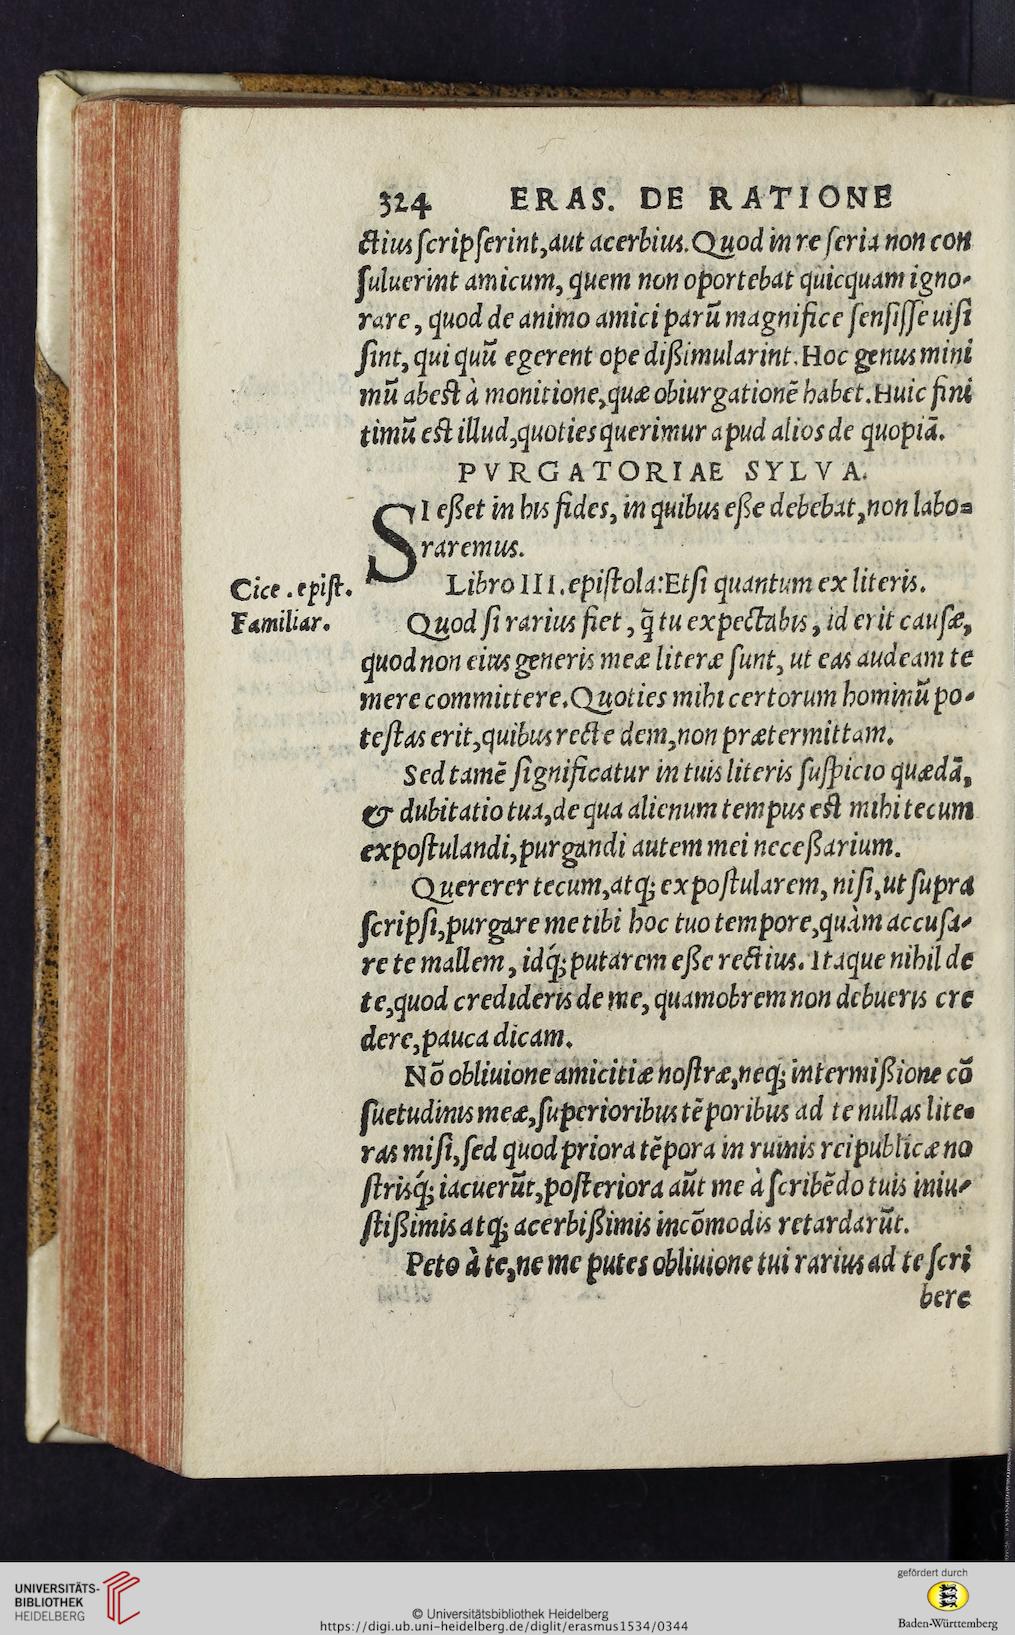 324 ERAS. DE RATIONE
ctius ſcripſerint, aut acerbius. Quod in re ſeria non con
ſuluerint amicum, quem non oportebat quicquam igno-
rare, quod de animo amici parũ magnifice ſenſiſſe uiſi
ſint, qui quũ egerent ope dißimularint. Hoc genus mini
mũ abest à monitione, quæ obiurgationẽ habet. Huic fini
timũ est illud, quoties querimur apud alios de quopiã.
PVRGATORIAE SYLVA.
SI eßet in his fides, in quibus eße debebat, non labo=
raremus.
Cice. epiſt.
Familiar.
Libro III. epiſtola: Etſi quantum ex literis.
Quod ſi rarius fiet, q̃ tu expectabis, id erit cauſæ,
quod non eius generis meæ literæ ſunt, ut eas audeam te
mere committere. Quoties mihi certorum hominũ po-
teſtas erit, quibus recte dem, non prætermittam.
Sed tamẽ ſignificatur in tuis literis ſuſpicio quædã,
& dubitatio tua, de qua alienum tempus est mihi tecum
expoſtulandi, purgandi autem mei neceßarium.
Quererer tecum, atq; expoſtularem, niſi, ut ſupra
ſcripſi, purgare me tibi hoc tuo tempore, quàm accuſa-
re te mallem, idq́; putarem eße rectius. Itaque nihil de
te, quod credideris de me, quamobrem non debueris cre
dere, pauca dicam.
Nõ obliuione amicitiæ noſtræ, neq; intermißione cõ
ſuetudinis meæ, ſuperioribus tẽporibus ad te nullas lite=
ras miſi, ſed quod priora tẽpora in ruinis reipublicæ no
ſtrisq́; iacuerũt, poſteriora aũt me à ſcribẽdo tuis iniu-
ſtißimis atq; acerbißimis incõmodis retardarũt.
Peto à te, ne me putes obliuione tui rarius ad te ſcri
bere
UNIVERSITÄTS-
BIBLIOTHEK
HEIDELBERG
© Universitätsbibliothek Heidelberg
https://digi.ub.uni-heidelberg.de/diglit/erasmus1534/0344
gefördert durch
Baden-Württemberg